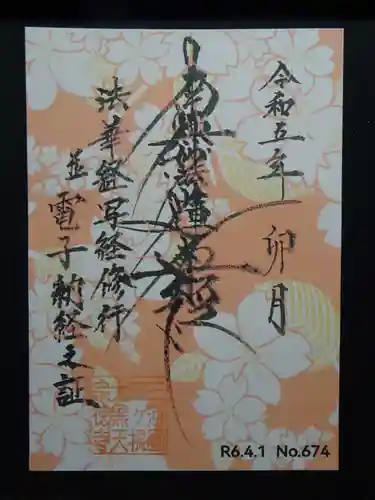 令和五年 卯月
南無妙法蓮華経
法華経写経修行
並電子納経之証
R6.4.1 No.674